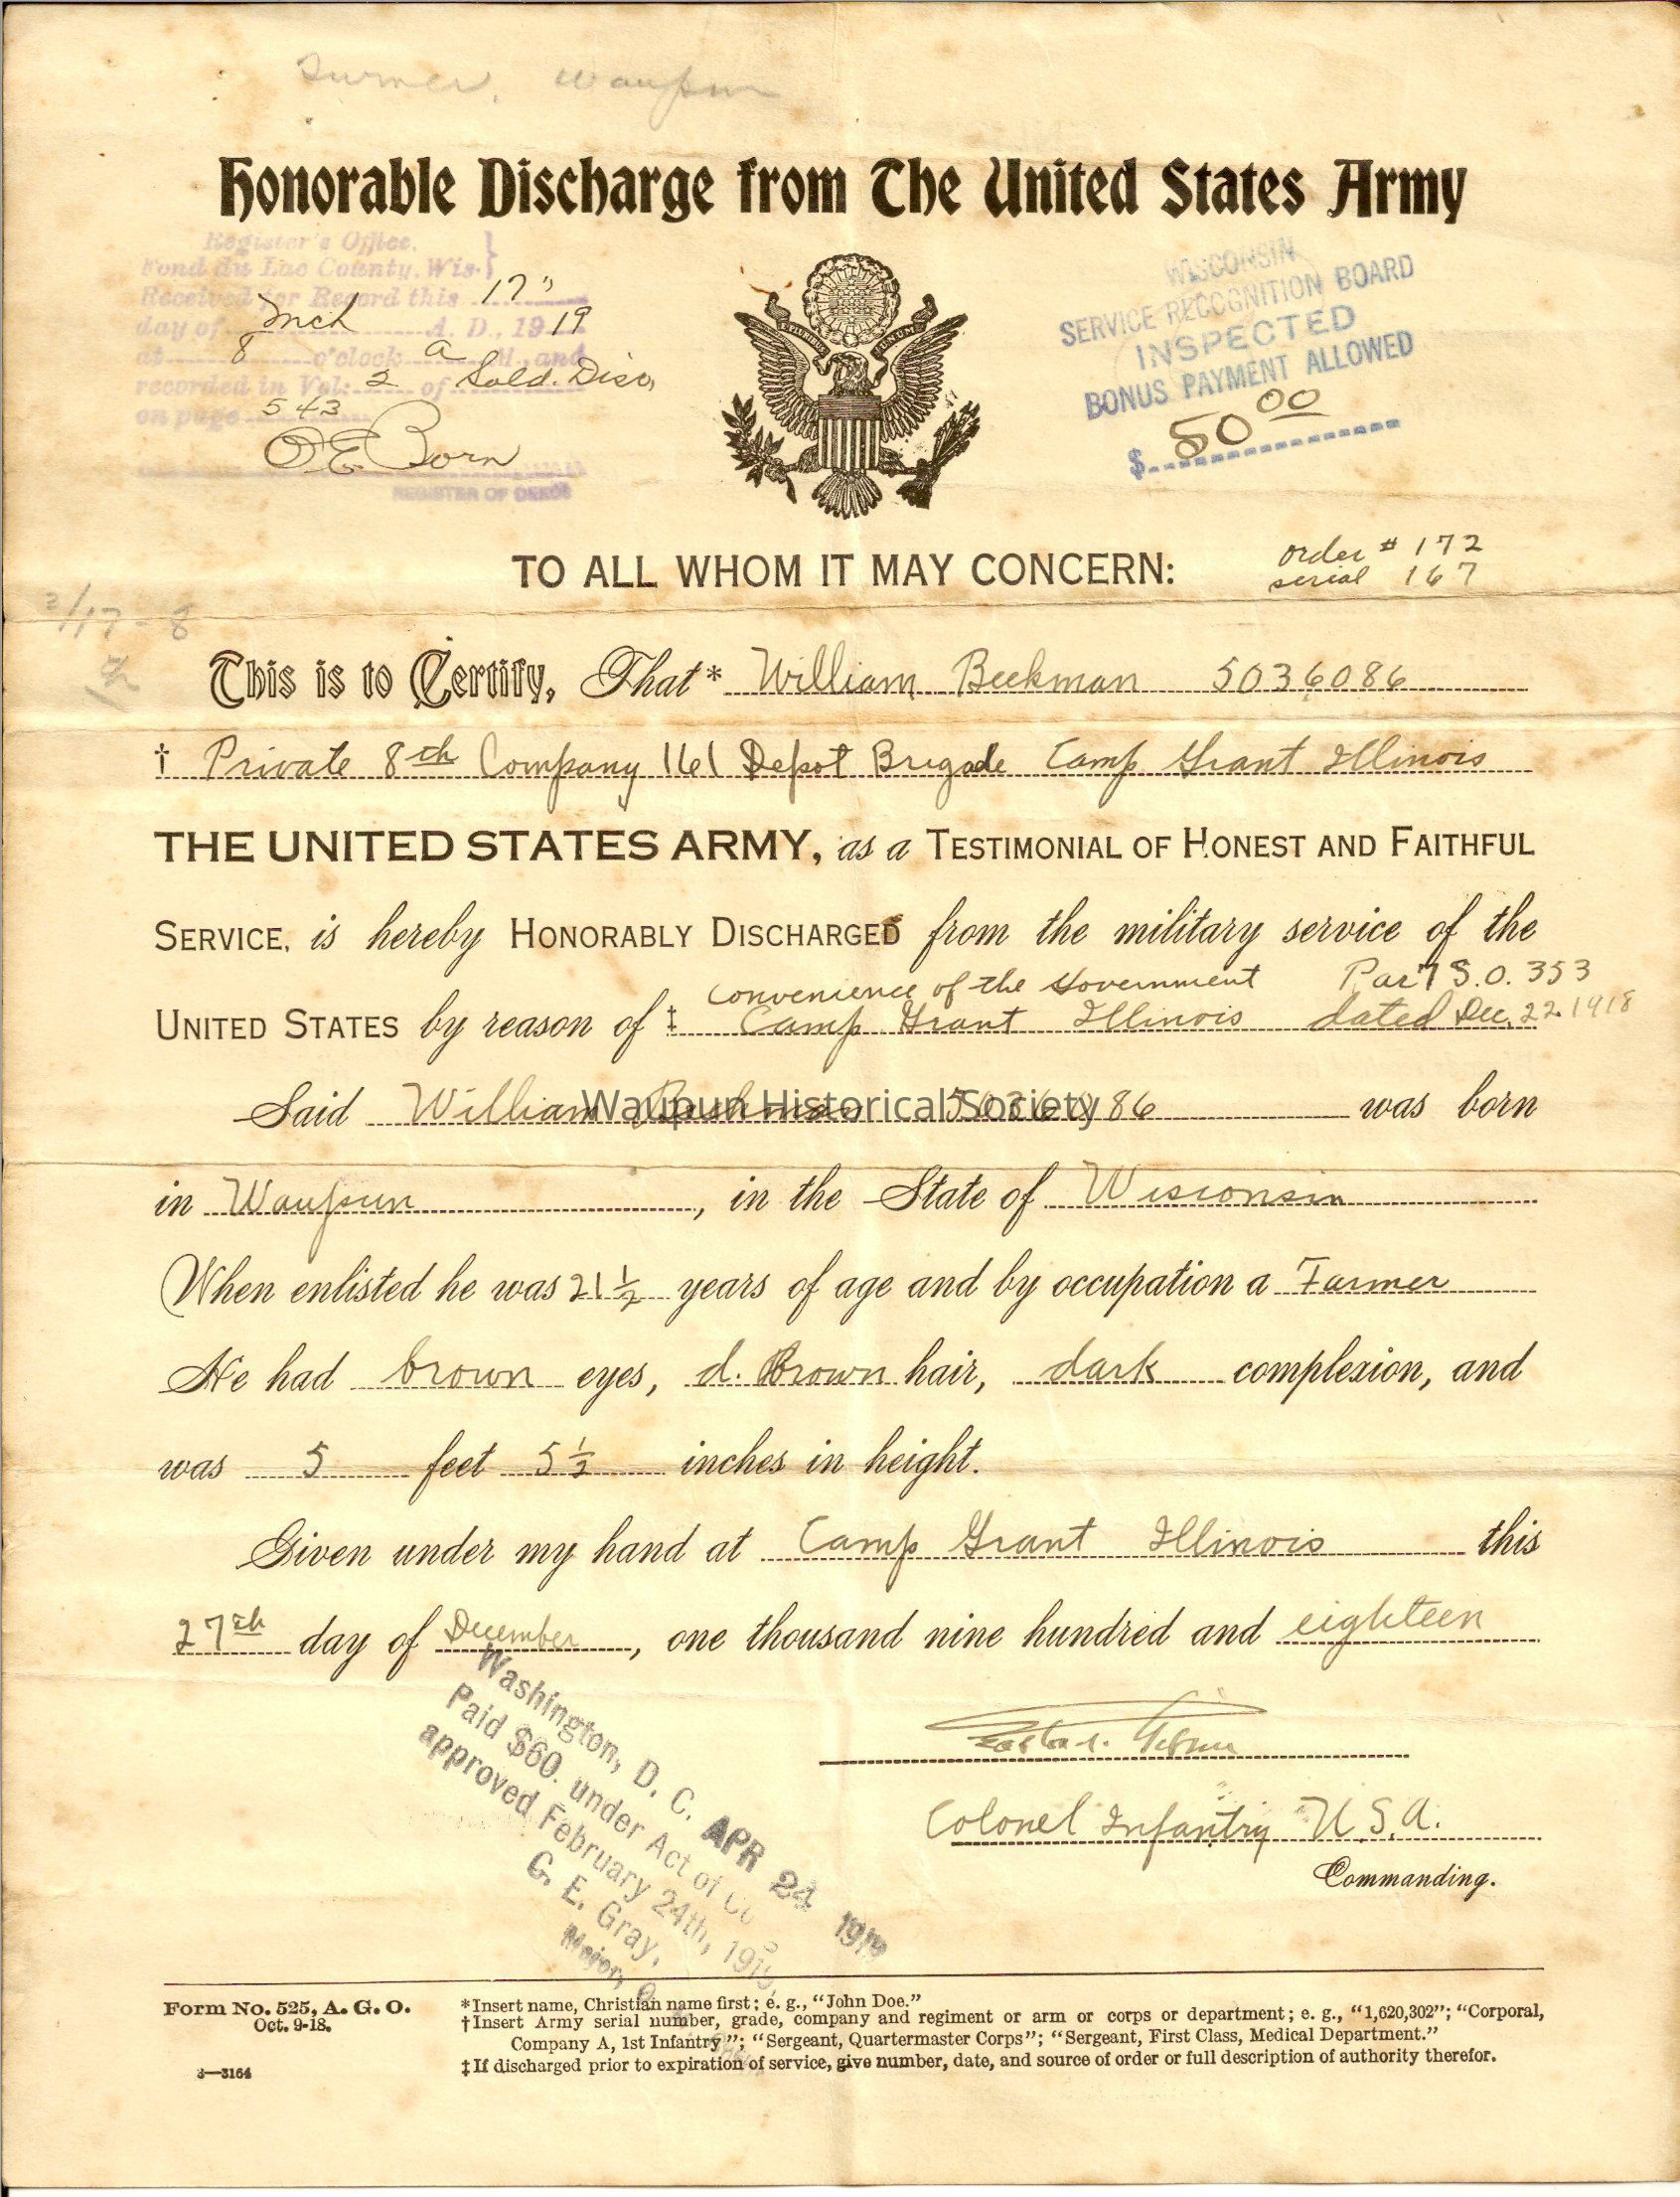 Turner, Waupun
Honorable Discharge from The United States Army
Register's Office,
Fond du Lac County, Wis.
Received for Record this 17"
day of Mch A. D., 1919
at 8 o'clock a M., and
recorded in Vol: 2 of Sold. Disc,
on page 543
O E Born
REGISTER OF DEEDS
E PLURIBUS UNUM
WISCONSIN
SERVICE RECOGNITION BOARD
INSPECTED
BONUS PAYMENT ALLOWED
$ 50 00
TO ALL WHOM IT MAY CONCERN:
order # 172
serial 167
This is to Certify, That* William Beekman 5036086
† Private 8th Company 161 Depot Brigade Camp Grant Illinois
THE UNITED STATES ARMY, as a TESTIMONIAL OF HONEST AND FAITHFUL
SERVICE, is hereby HONORABLY DISCHARGED from the military service of the
convenience of the Government Par 7 S.O. 353
UNITED STATES by reason of ‡ Camp Grant Illinois dated Dec. 22. 1918
Said William Beekman 5036086 was born
Waupun Historical Society
in Waupun, in the State of Wisconsin
When enlisted he was 21 1/2 years of age and by occupation a Farmer
He had brown eyes, d. Brown hair, dark complexion, and
was 5 feet 5 1/2 inches in height.
Given under my hand at Camp Grant Illinois this
27th day of December, one thousand nine hundred and eighteen
Colonel Infantry U.S.A.
Commanding.
Washington, D. C. APR 24 1919
Paid $60. under Act of
approved February 24th, 1919
G. E. Gray,
Major,
Form No. 525, A. G. O.
Oct. 9-18.
3—3164
*Insert name, Christian name first; e. g., "John Doe."
†Insert Army serial number, grade, company and regiment or arm or corps or department; e. g., "1,620,302"; "Corporal,
Company A, 1st Infantry"; "Sergeant, Quartermaster Corps"; "Sergeant, First Class, Medical Department."
‡If discharged prior to expiration of service, give number, date, and source of order or full description of authority therefor.